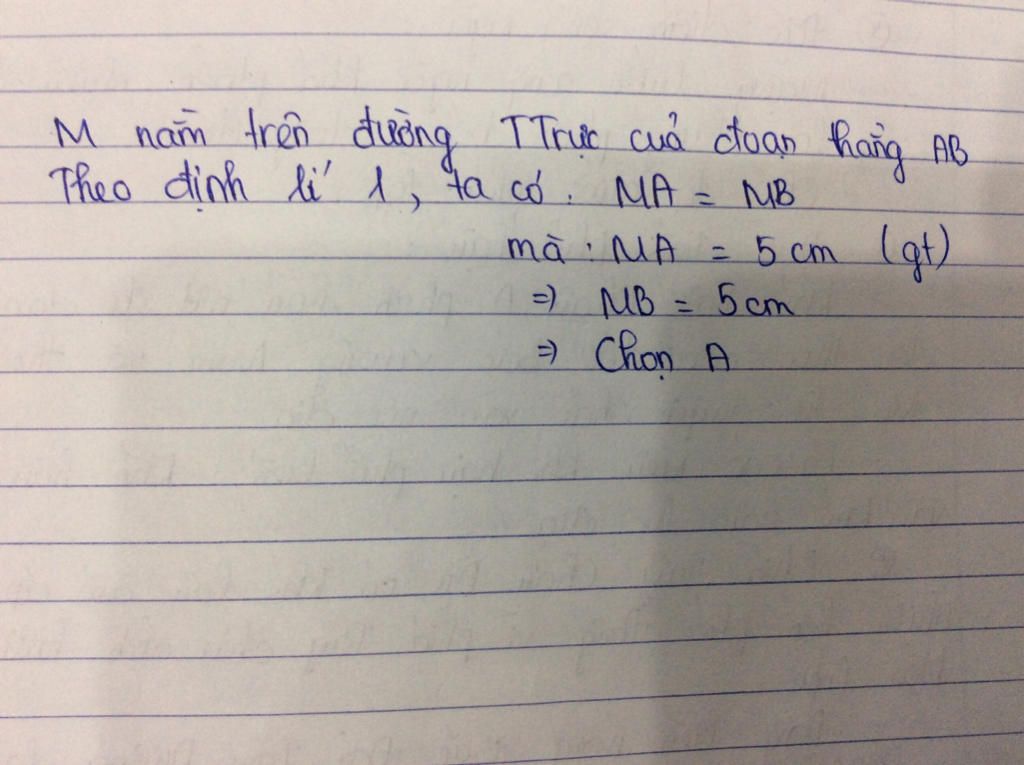 M nằm trên đường TTrực của đoạn thẳng AB
Theo định lí 1, ta có : MA = MB
mà : MA = 5 cm (gt)
=> MB = 5cm
=> Chọn A